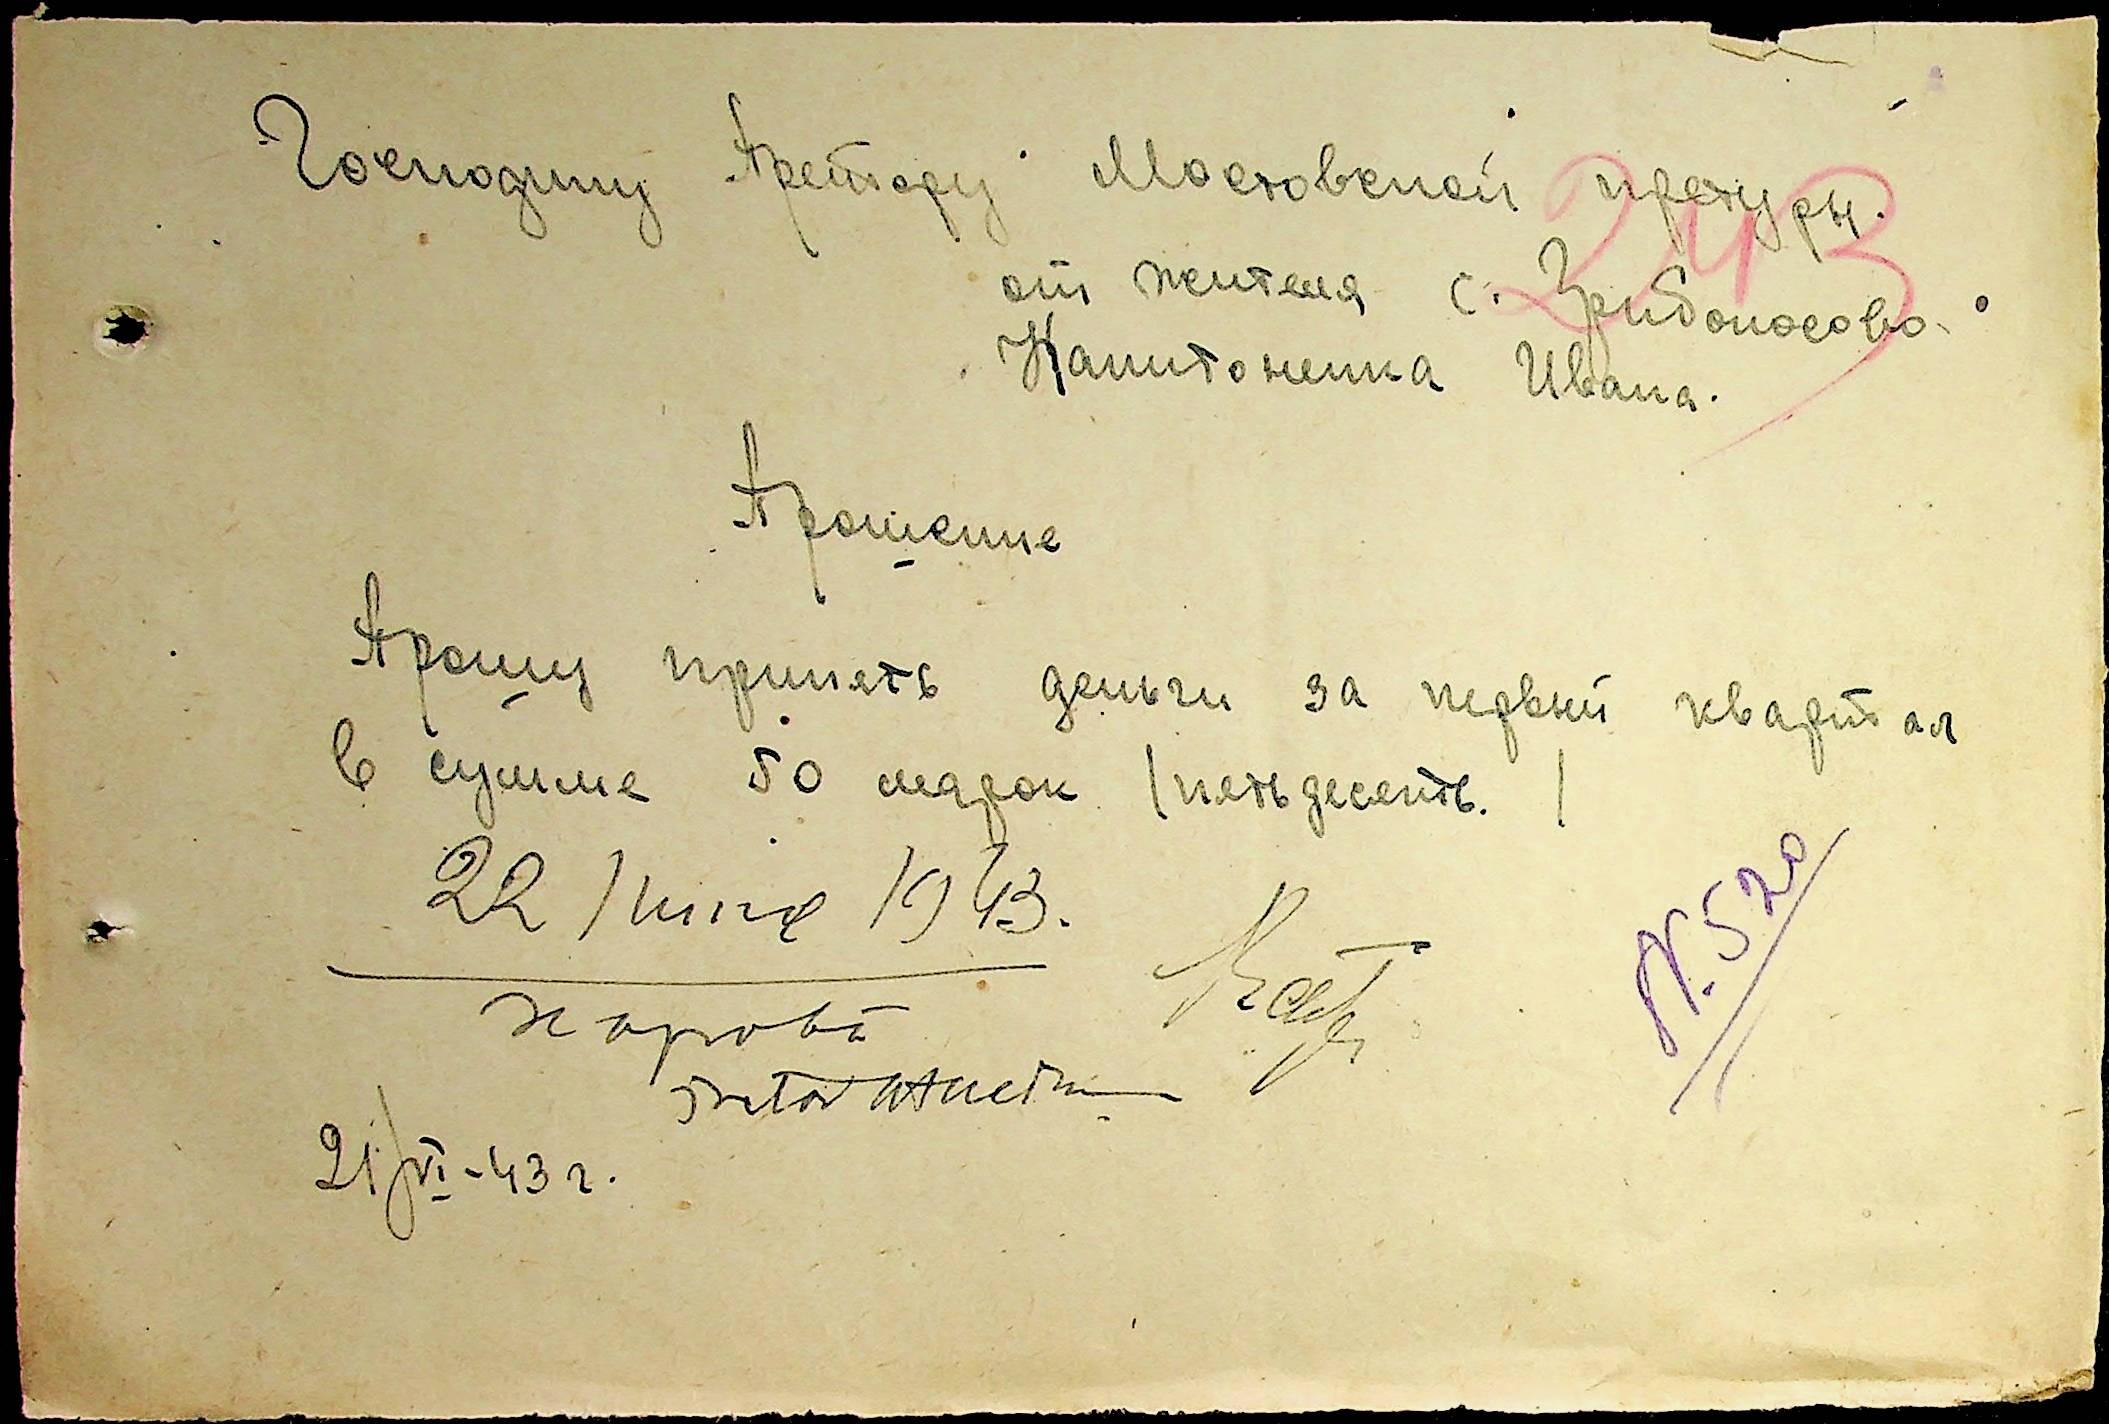 Господину Претору Мостовской претуры.
243
от жителя с. Грибоносово.
Капитоненка Ивана.
Прошение
Прошу принеть деньги за первый квартал
в сумме 50 марок (петьдесеть.)
22 / Июня 1943.
N. 520
21/VI-43 г.